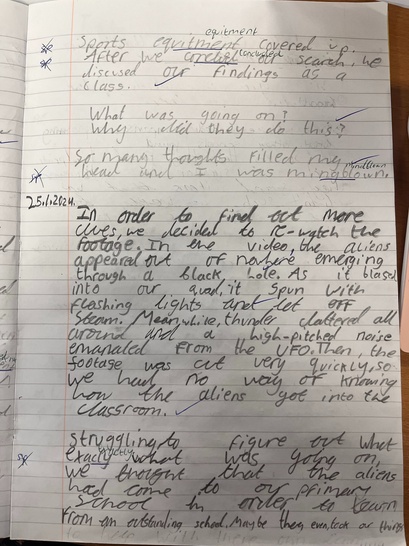 equitment
Sports equitment covered up.
After we concluded our search, we
discused our findings as a
class.
What was going on?
Why did they do this?
So many thoughts filled my
head and I was mingblown.
mindblown
25.1.2024.
In order to find out more
clues, we decided to re-watch the
footage. In the video, the aliens
appeared out of nowhere emerging
through a black hole. As it blased
into our quad, it spun with
flashing lights and let off
steam. Meanwhile, thunder clattered all
around and a high-pitched noise
emanated from the UFO. Then, the
footage was cut very quickly, so
we had no way of knowing
how the aliens got into the
classroom.
Struggling to figure out what
exactly what was going on,
we thought that the aliens
had come to our primary
School in order to learn
from an outstanding school. Maybe they even took our things